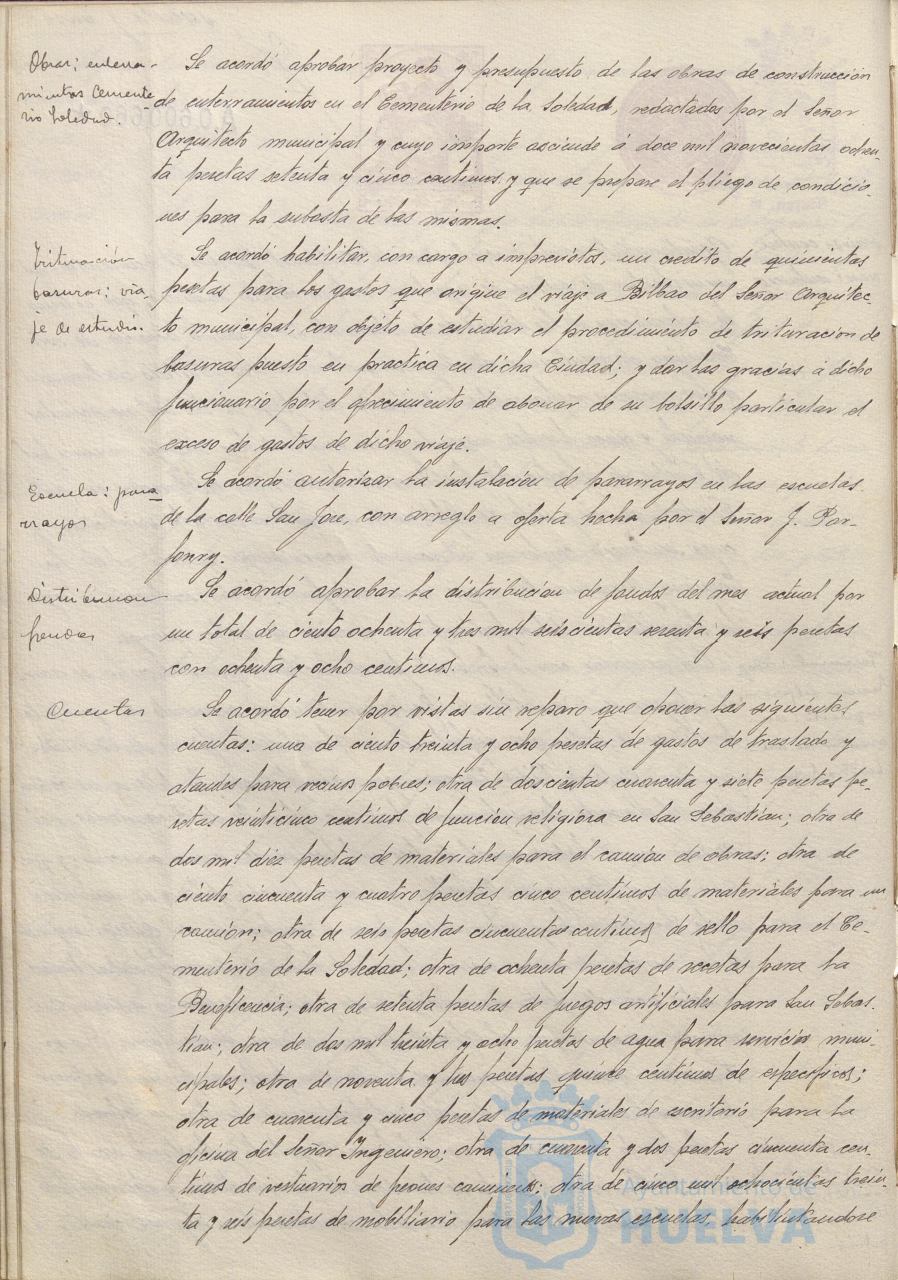 Obras; enterra-
mientos Cemente-
rio Soledad.
Se acordó aprobar proyecto y presupuesto de las obras de construcción
de enterramientos en el Cementerio de la Soledad, redactados por el Señor
Arquitecto municipal y cuyo importe asciende á doce mil novecientas ochen-
ta pesetas setenta y cinco centimos y que se prepare el pliego de condicio-
nes para la subasta de las mismas.
Trituración
basuras; via-
je de estudio.
Se acordó habilitar, con cargo a imprevistos, un credito de quinientas
pesetas para los gastos que origine el viaje a Bilbao del Señor Arquitec-
to municipal, con objeto de estudiar el procedimiento de trituracion de
basuras puesto en practica en dicha Ciudad; y dar las gracias á dicho
funcionario por el ofrecimiento de abonar de su bolsillo particular el
exceso de gastos de dicho viaje.
Escuela: para-
rrayos
Se acordó autorizar la instalación de pararrayos en las escuelas
de la calle San Jose, con arreglo a oferta hecha por el Señor J.
Distribucion
fondos
Se acordó aprobar la distribución de fondos del mes actual por
un total de ciento ochenta y tres mil seiscientas sesenta y seis pesetas
con ochenta y ocho centimos.
Cuentas
Se acordó tener por vistas sin reparo que oponer las siguientes
cuentas: una de ciento treinta y ocho pesetas de gastos de traslado y
ataudes para vecinos pobres; otra de doscientas cuarenta y siete pesetas pe-
setas veinticinco centimos de función religiosa en San Sebastián; otra de
dos mil diez pesetas de materiales para el camión de obras; otra de
ciento cincuenta y cuatro pesetas cinco centimos de materiales para un
camión; otra de seis pesetas cincuenta centimos de sello para el Ce-
menterio de la Soledad; otra de ochenta pesetas de recetas para la
Beneficencia; otra de setenta pesetas de juegos artificiales para San Sebas-
tián; otra de dos mil treinta y ocho pesetas de agua para servicios muni-
cipales; otra de noventa y tres pesetas quince centimos de especificos;
otra de cuarenta y cinco pesetas de materiales de escritorio para la
oficina del Señor Ingeniero; otra de cuarenta y dos pesetas cincuenta cen-
timos de vestuarios de peones camineros; otra de cinco mil ochocientas trein-
ta y seis pesetas de mobiliario para las nuevas escuelas, habilitandose
Ayuntamiento de
HUELVA